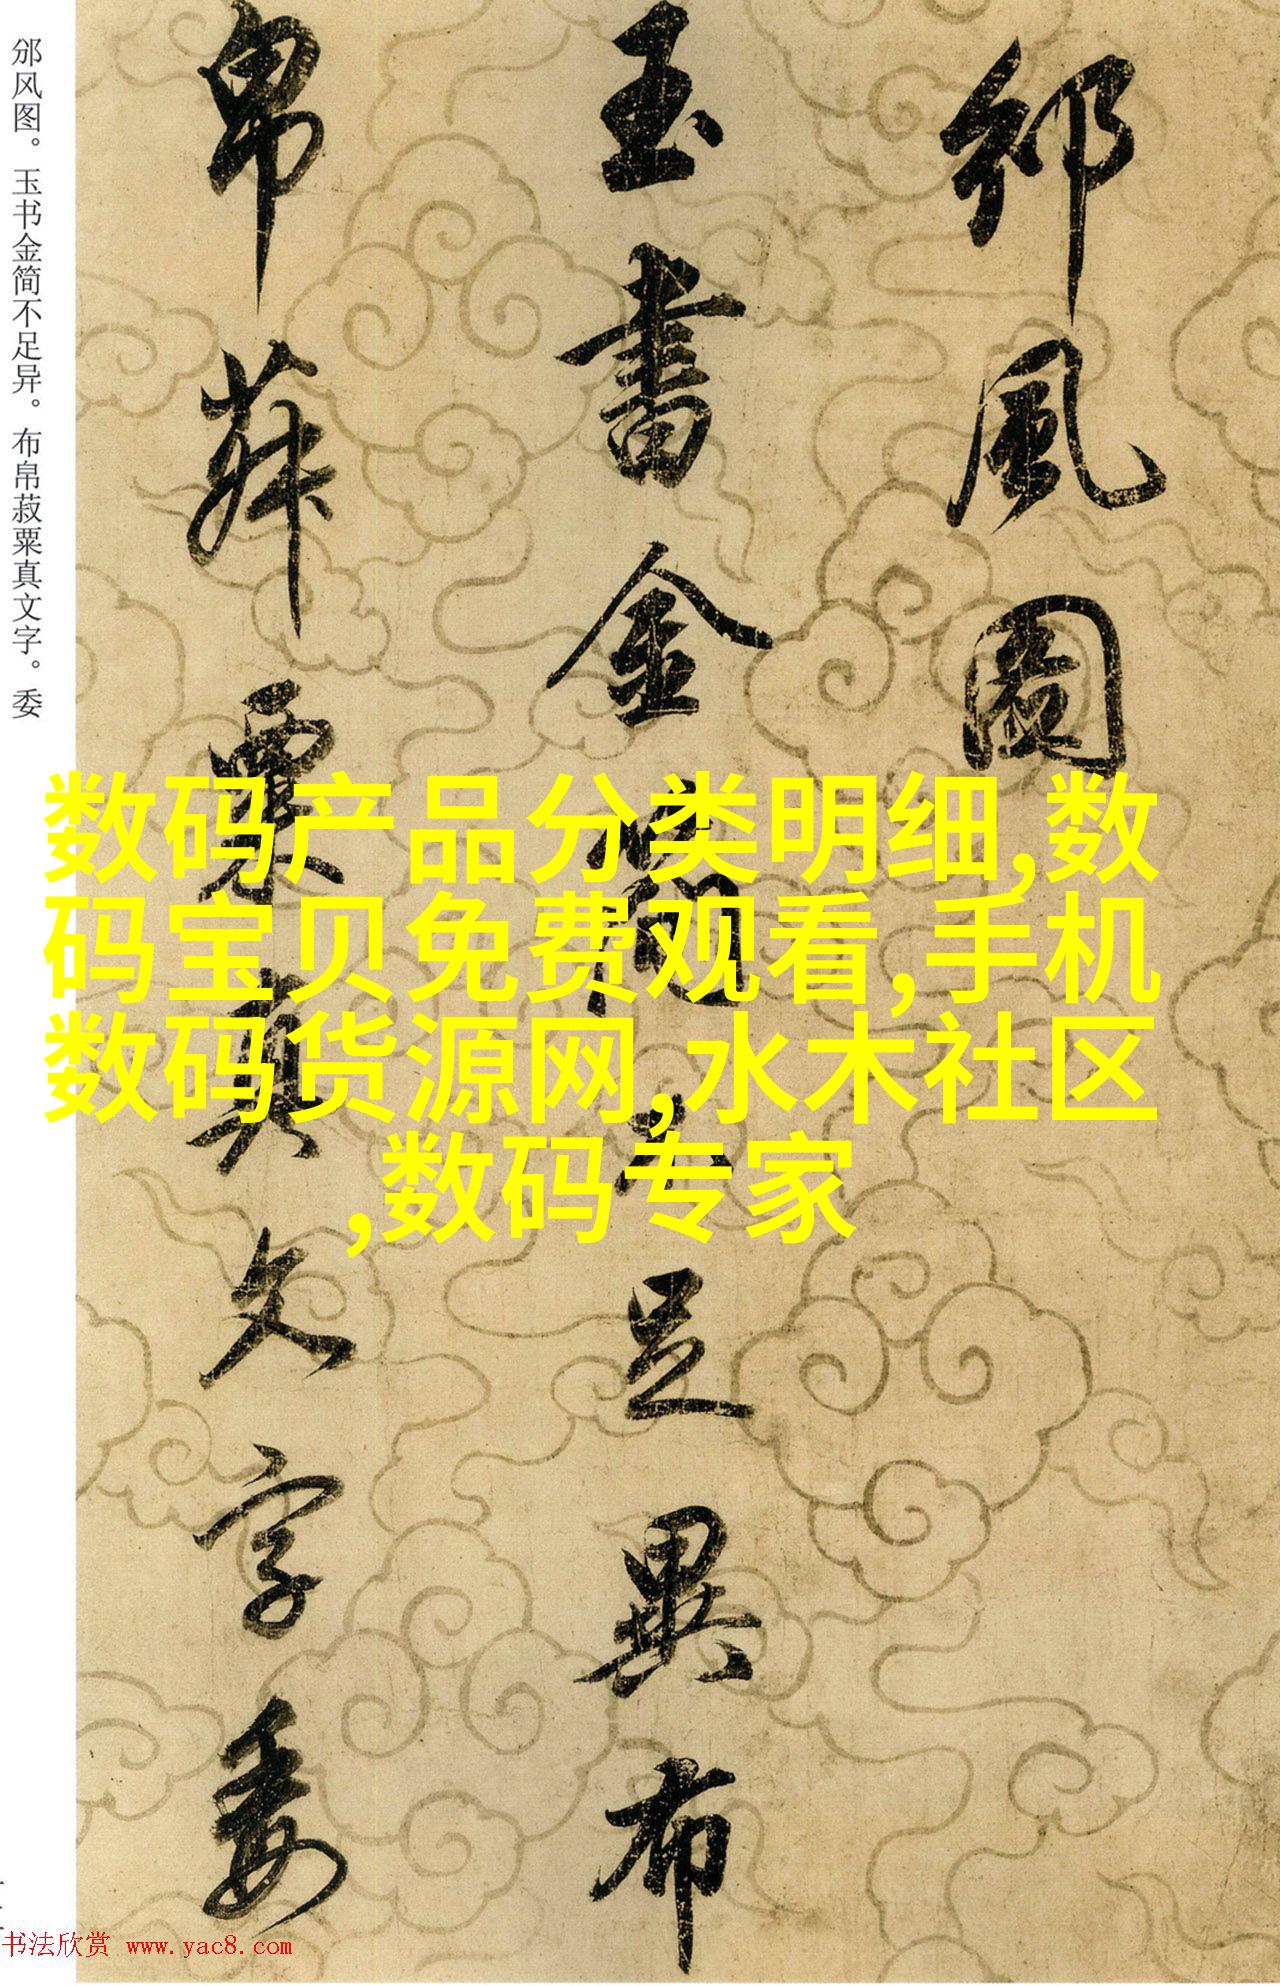 邠风图。玉书金简不足异。布帛菽粟真文字。委
邠風圖
玉書金簡不足異布
帛菽粟真文字委
数码产品分类明细,数
码宝贝免费观看,手机
数码货源网,水木社区
,数码专家
书法欣赏 www.yac8.com